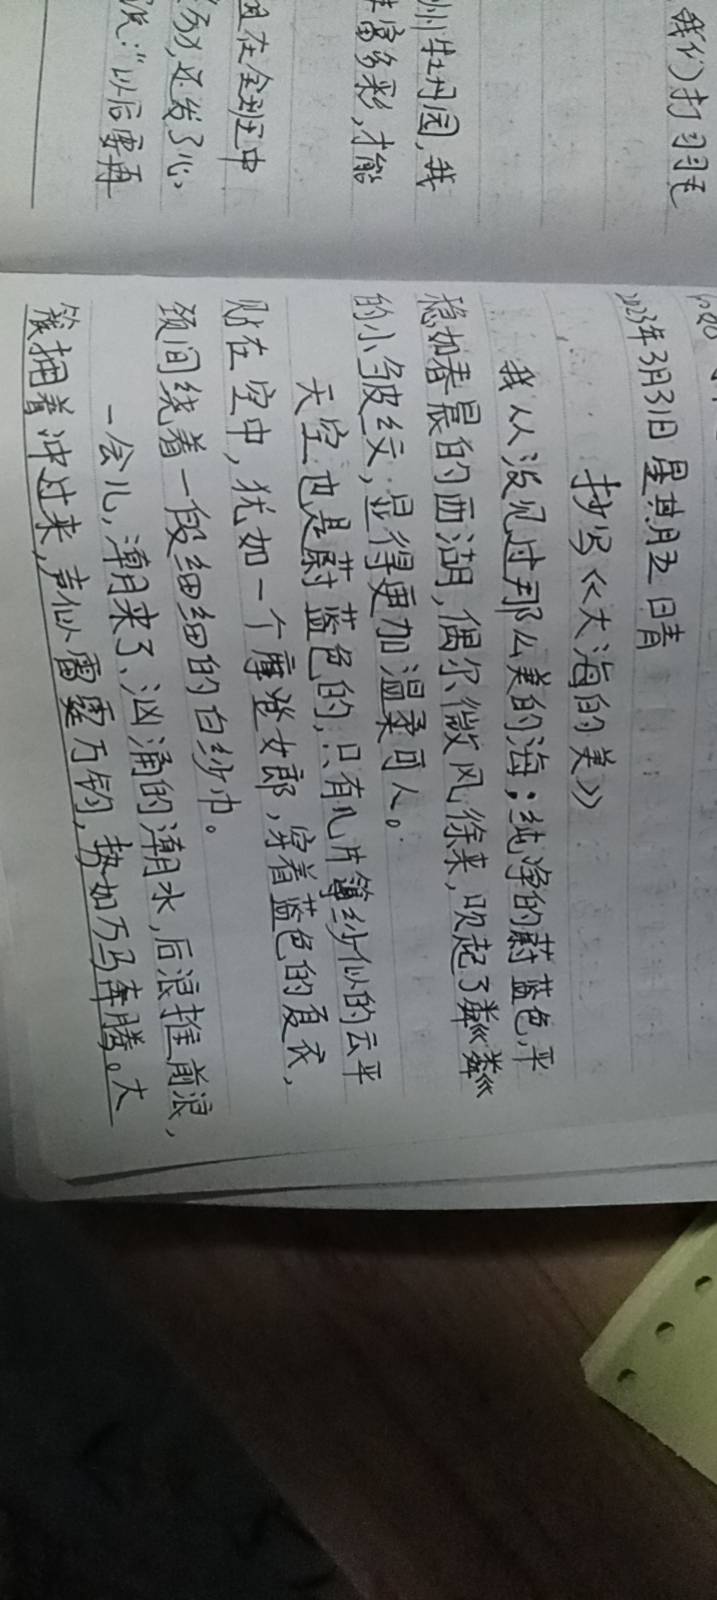 我们打羽毛
州牡丹园,我
丰富多彩,才能
在全班中
还发了心
说:“以后要再
2023年3月31日 星期五 晴
抄写《大海的美》
我从没见过那么美的海;纯净的蔚蓝色,平
稳如春晨的西湖,偶尔微风徐来,吹起了粼粼
的小皱纹,显得更加温柔可人。
天空也是蔚蓝色的,只有几片薄纱似的云平
贴在空中,犹如一个摩登女郎,穿着蓝色的夏衣,
颈间绕着一段细细的白纱巾。
一会儿,潮来了、汹涌的潮水,后浪推前浪,
簇拥着冲过来,声似雷霆万钧,势如万马奔腾。大